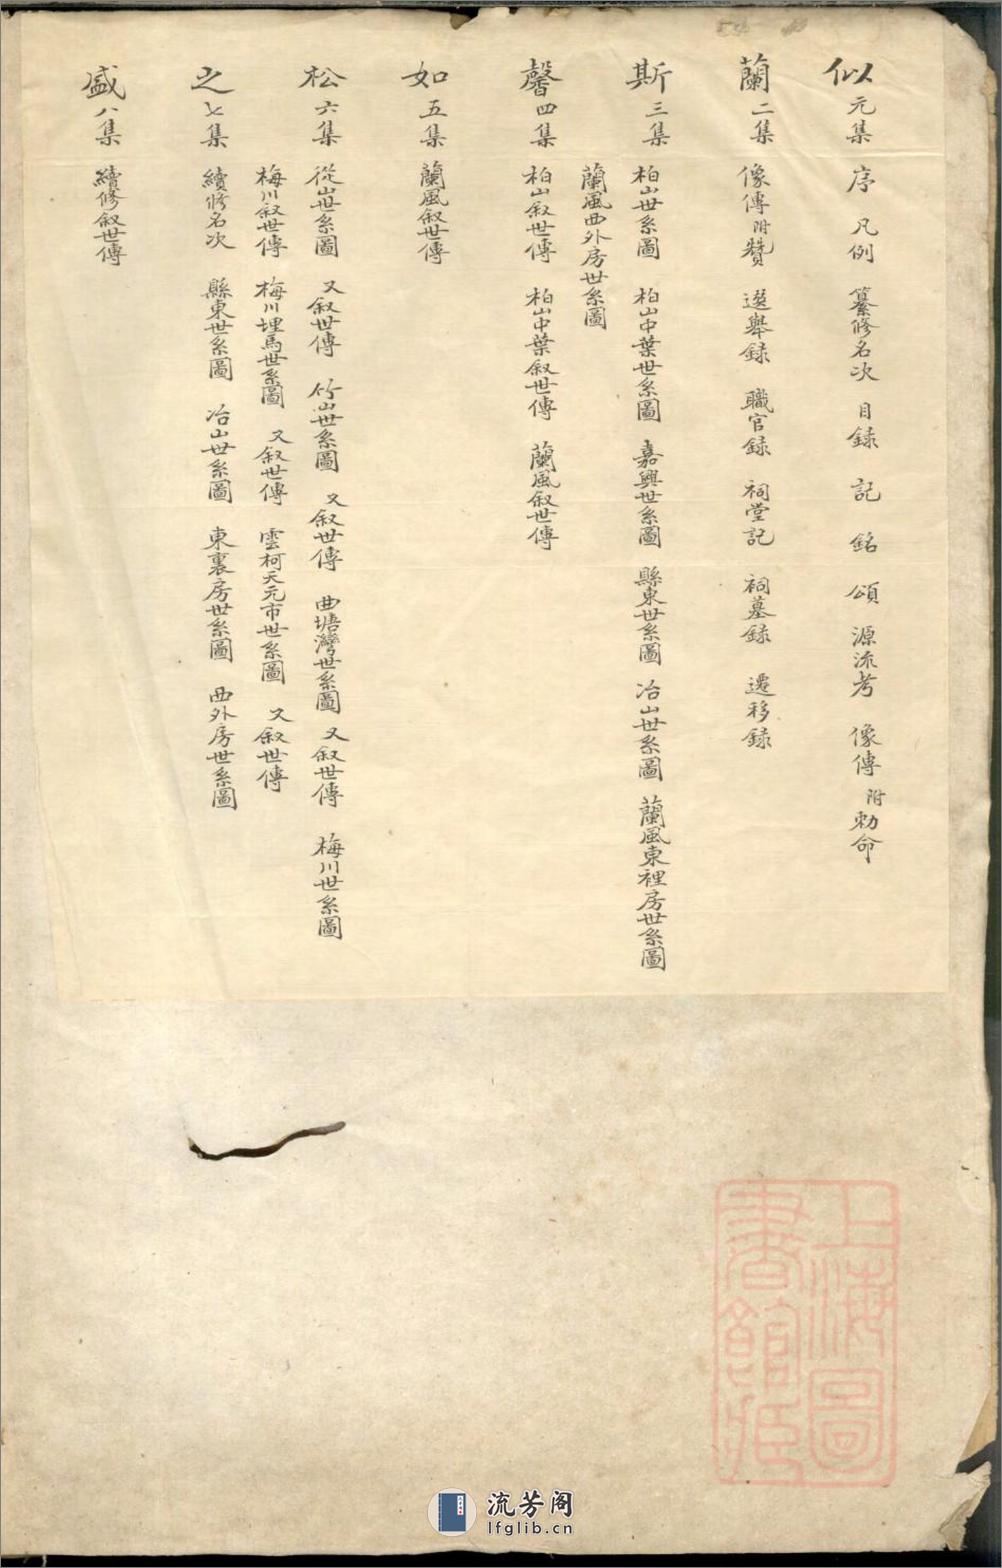 似 元集 序 凡例 纂修名次 目録 記 銘 頌 源流考 像傳 附勅命
蘭 二集 像傳附贊 選舉録 職官録 祠堂記 祠墓録 遷移録
斯 三集 柏山世系圖 柏山中葉世系圖 嘉興世系圖 縣東世系圖 冶山世系圖 蘭風東裡房世系圖
蘭風西外房世系圖
馨 四集 柏山叙世傳 柏山中葉叙世傳 蘭風叙世傳
如 五集 蘭風叙世傳
松 六集 從山世系圖 又叙世傳 竹山世系圖 又叙世傳 曲塘灣世系圖 又叙世傳 梅川世系圖
梅川叙世傳 梅川埋馬世系圖 又叙世傳 雲柯天元市世系圖 又叙世傳
之 七集 續修名次 縣東世系圖 冶山世系圖 東裏房世系圖 西外房世系圖
盛 八集 續修叙世傳
上海圖
書館藏
流芳阁
lfglib.cn